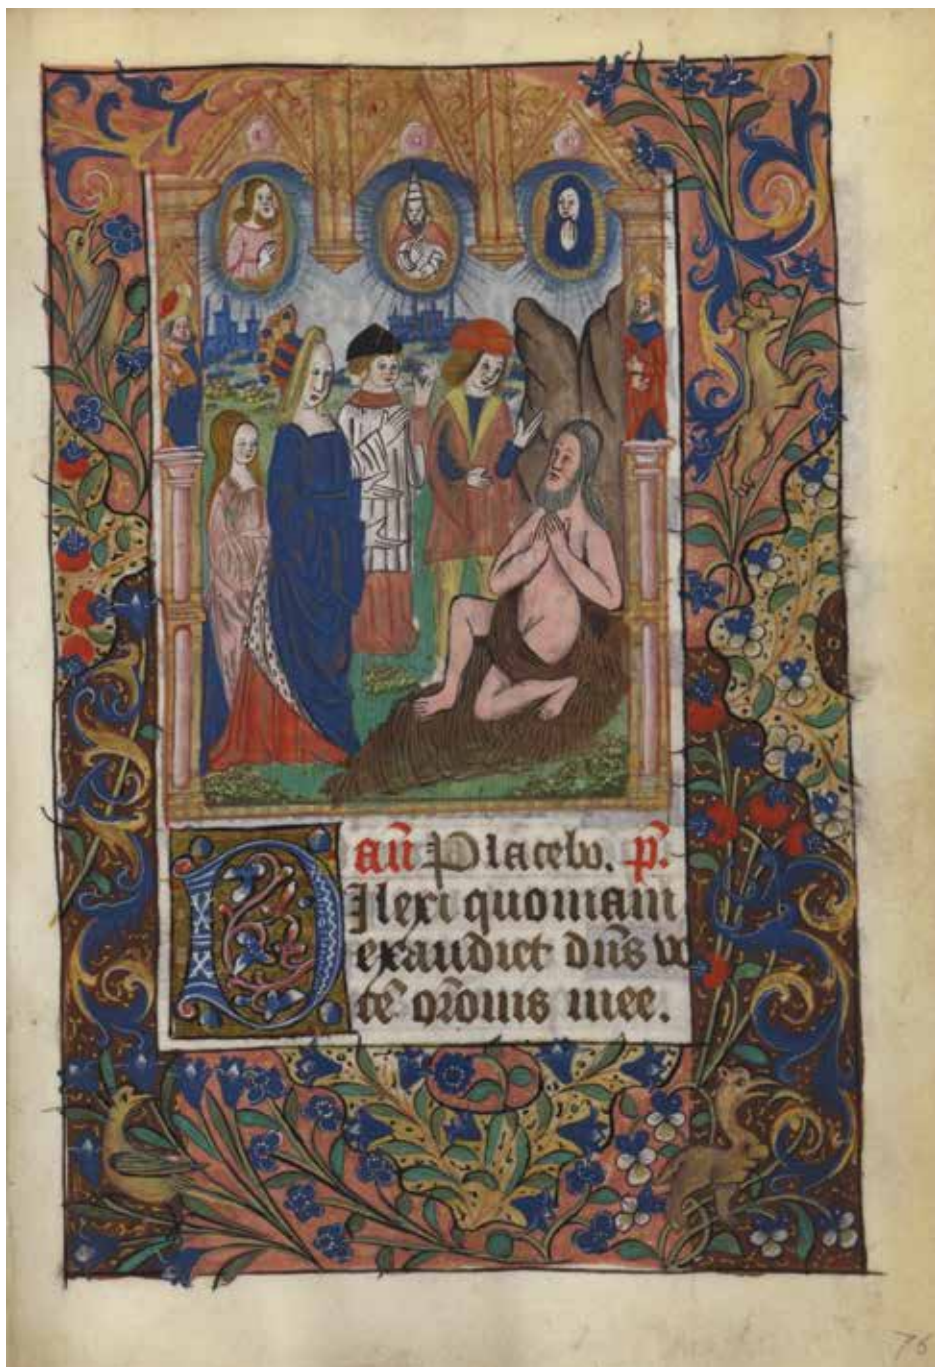 an̄ Placebo. p̄.
DIlexi quoniam
exaudiet dn̄s vo
cē or̄onis mee.
76